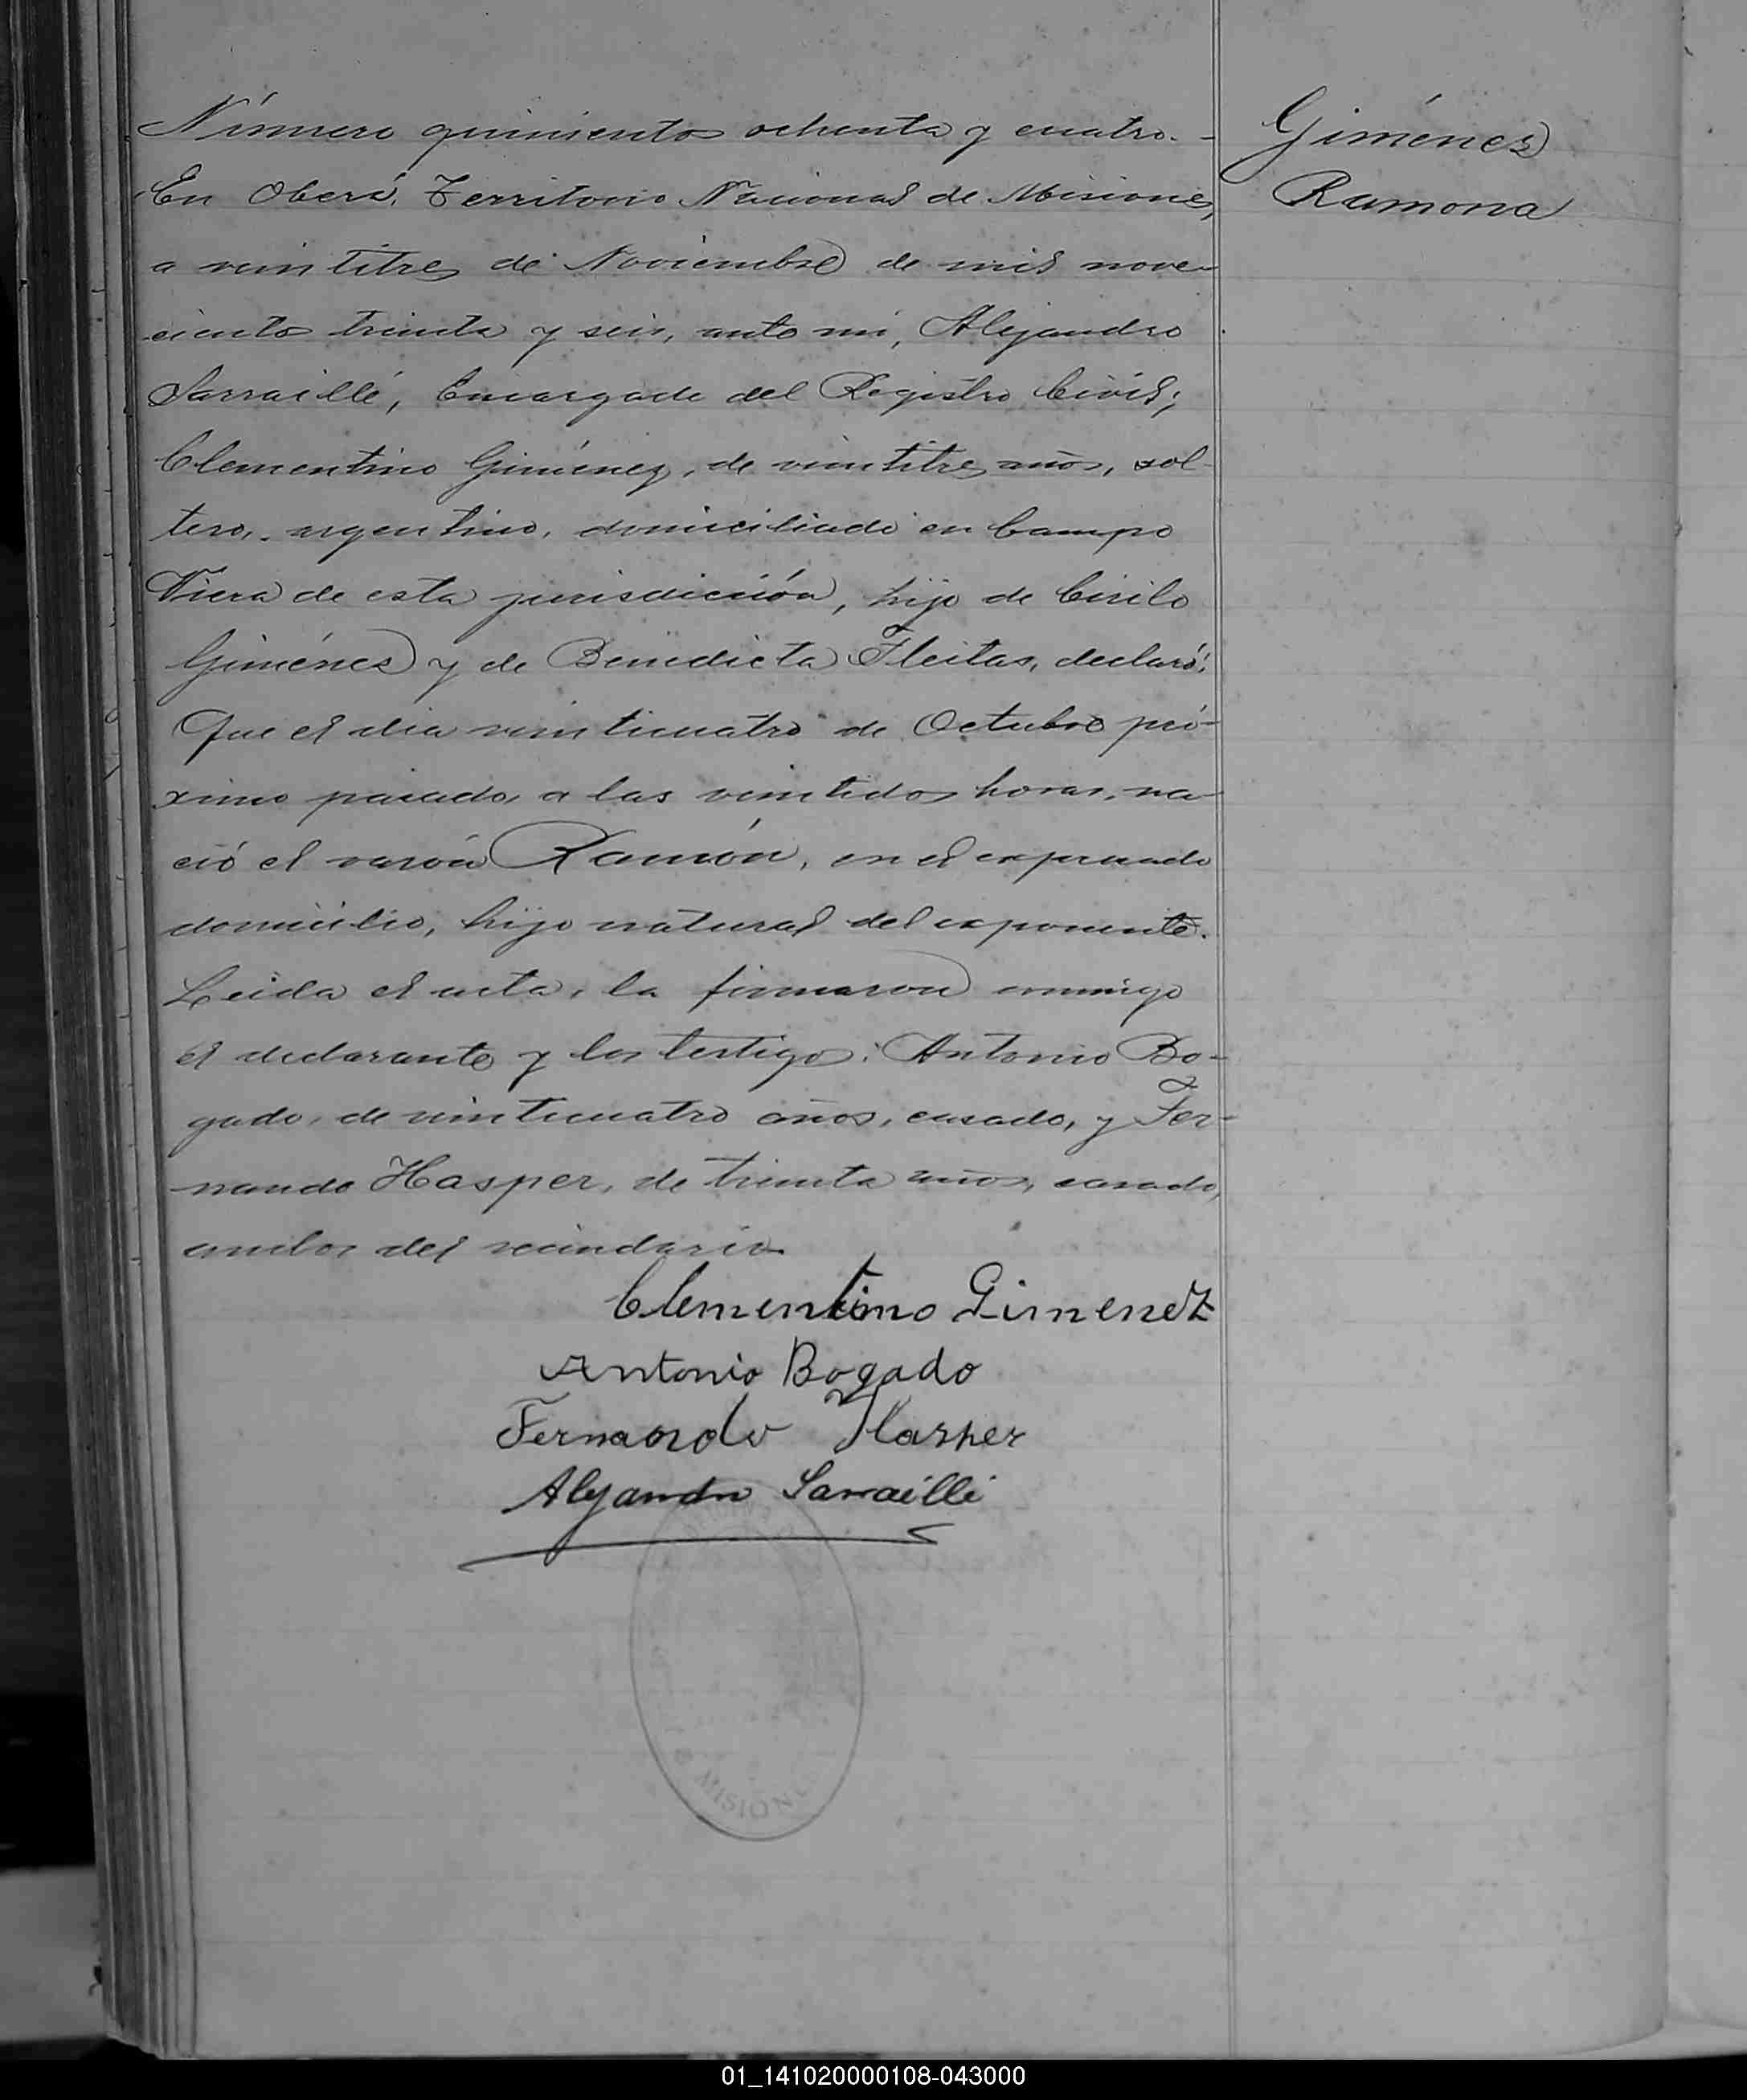 Número quinientos ochenta y cuatro.-
En Oberá, Territorio Nacional de Misiones,
a veintitres de Noviembre de mil nove-
cientos treinta y seis, ante mi, Alejandro
Sarraillé, Encargado del Registro Civil;
Clementino Giménez, de veintitres años, sol-
tero, argentino, domiciliado en Campo
Viera de esta jurisdicción, hijo de Cirilo
Giménez y de Benedicta Fleitas, declaró:
Que el dia veinticuatro de Octubre pró-
ximo pasado, a las veintidos horas, na-
ció el varón Ramón, en el expresado
domicilio, hijo natural del exponente.
Leida el acta, la firmaron conmigo
el declarante y los testigos: Antonio Bo-
gado, de veinticuatro años, casado, y Fer-
nando Hasper, de treinta años, casado,
ambos del vecindario.
Clementino Gimenez
Antonio Bogado
Fernando Hasper
Alejandro Sarraillé
MISIONES
Giménez
Ramona
01_141020000108-043000